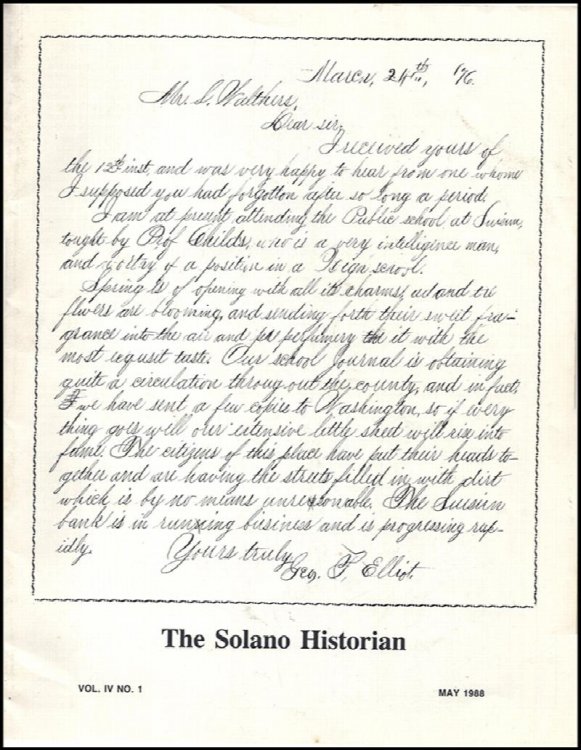 March, 24th, '76.
Mr. S. Walthers,
Dear sir,
I received yours of
the 12th inst, and was very happy to hear from one whome
I supposed you had forgotton after so long a period.
I am at present attending the Public school, at Suisun,
tought by Prof Childs, who is a very intelligence man,
and wortry of a position in a High school.
Spring is of opening with all its charms, and tre
flwers are blooming, and sending forth their sweet fra-
grance into the air and perfumery it with the
most iequsit taste. Our school Journal is obtaining
quite a circulation throug out the county, and in fact,
we have sent a few copies to Washington, so if every
thing goes well our extensive little sheet will rise into
fame. The citizens of this place have put their heads to-
gether and are having the streets filled in with dirt
which is by no means unresonable. The Suisun
bank is in running business and is progressing rap-
idly.
Yours truly,
Geo. F. Elliot.
The Solano Historian
VOL. IV NO. 1
MAY 1988